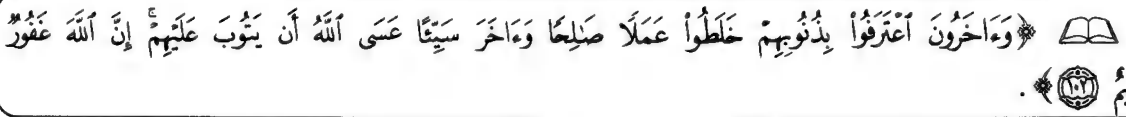 ﴿وَءَاخَرُونَ ٱعْتَرَفُوا۟ بِذُنُوبِهِمْ خَلَطُوا۟ عَمَلًا صَـٰلِحًا وَءَاخَرَ سَيِّئًا عَسَى ٱللَّهُ أَن يَتُوبَ عَلَيْهِمْ ۚ إِنَّ ٱللَّهَ غَفُورٌ
١٠٢﴾.